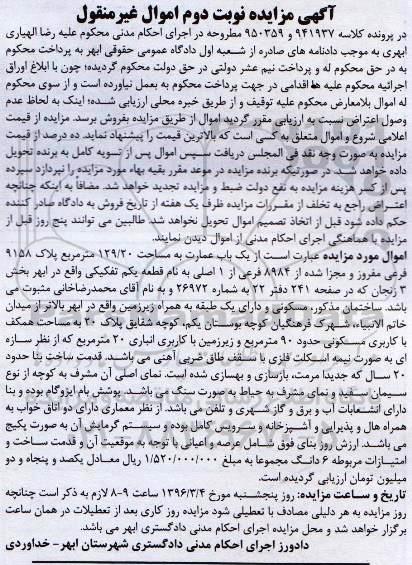 آگهی مزایده نوبت دوم اموال غیرمنقول
در پرونده کلاسه ۹۴۱۹۳۷ و ۹۵۰۳۵۹ مطروحه در اجرای احکام مدنی محکوم علیه رضا الهیاری
ابهری به موجب دادنامه های صادره از شعبه اول دادگاه عمومی حقوقی ابهر به پرداخت محکوم
به در حق محکوم له و پرداخت نیم عشر دولتی در حق دولت محکوم گردیده؛ چون با ابلاغ اوراق
اجرائیه محکوم علیه اقدامی در جهت پرداخت محکوم به بعمل نیاورده است و از سوی محکوم
له اموال بلامعارض محکوم علیه توقیف و از طریق خبره محلی ارزیابی شده؛ اینک به لحاظ عدم
وصول اعتراض نسبت به ارزیابی مقرر گردید اموال از طریق مزایده بفروش برسد. مزایده از قیمت
اعلامی شروع و اموال متعلق به کسی است که بالاترین قیمت را پیشنهاد نماید. ده درصد از قیمت
مزایده به صورت وجه نقد فی المجلس دریافت سپس اموال پس از تسویه کامل به برنده تحویل
داده خواهد شد. در صورتیکه برنده مزایده در موعد مقرر بقیه بهاء مورد مزایده را نپردازد سپرده
پس از کسر هزینه مزایده به نفع دولت ضبط و مزایده تجدید خواهد شد. مضافا به اینکه چنانچه
اعتراض راجع به تخلف از مقررات مزایده ظرف یک هفته از تاریخ فروش به دادگاه صادر کننده
حکم داده شود قبل از اتخاذ تصمیم اموال تحویل نخواهد شد. طالبین می توانند پنج روز قبل از
مزایده با هماهنگی اجرای احکام مدنی از اموال دیدن نمایند.
اموال مورد مزایده عبارت است از یک باب عمارت به مساحت ۱۲۹/۲۰ مترمربع پلاک ۹۱۵۸
فرعی مفروز و مجزا شده از ۸۹۸۴ فرعی از ۱ اصلی به نام قطعه یکم تفکیکی واقع در ابهر بخش
۳ زنجان که در صفحه ۲۴۱ دفتر ۲۲ به شماره ۲۶۹۷۲ و به نام آقای محمدرضاخانی مثبوت می
باشد. ساختمان مذکور، مسکونی و دارای یک طبقه به همراه زیرزمین واقع در ابهر بالاتر از میدان
خاتم الانبیاء، شهرک فرهنگیان کوچه بوستان یکم، کوچه شقایق پلاک ۲۰ به مساحت همکف
با کاربری مسکونی حدود ۹۰ مترمربع و زیرزمین با کاربری انباری ۲۰ مترمربع که از نظر سازه
ای به صورت نیمه اسکلت فلزی با سقف طاق ضربی آهنی می باشد. قدمت ساخت بنا حدود
۲۰ سال که جدیدا مرمت، بازسازی و بهسازی شده است. نمای اصلی آن مشرف به کوچه از نوع
سیمان سفید و نمای مشرف به حیاط به صورت سنگ می باشد. پوشش بام ایزوگام بوده و بنا
دارای انشعابات آب و برق و گاز شهری و تلفن می باشد. از نظر معماری دارای دو اتاق خواب به
همراه هال و پذیرایی و آشپزخانه و سرویس کامل بوده و سیستم گرمایش آن به صورت پکیج
می باشد. ارزش روز بنای فوق شامل عرصه و اعیانی با توجه به موقعیت آن و قدمت ساخت و
امتیازات مربوطه ۶ دانگ مجموعا به مبلغ ۱/۵۲۰/۰۰۰/۰۰۰ ریال معادل یکصد و پنجاه و دو
میلیون تومان ارزیابی گردیده است.
تاریخ و ساعت مزایده: روز پنجشنبه مورخ ۱۳۹۶/۳/۴ ساعت ۹-۸ لازم به ذکر است چنانچه
روز مزایده به هر دلیلی مصادف با تعطیلی شود مزایده روز کاری بعد از تعطیلات در همان ساعت
برگزار خواهد شد و محل مزایده اجرای احکام مدنی دادگستری ابهر می باشد.
دادورز اجرای احکام مدنی دادگستری شهرستان ابهر- خداوردی